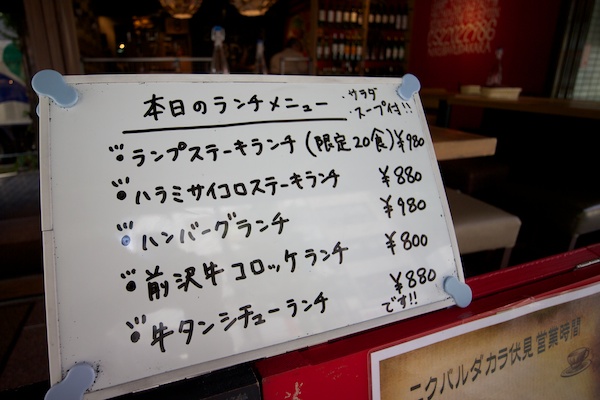 本日のランチメニュー ・サラダ
・スープ付!!
ランプステーキランチ(限定20食)¥980
ハラミサイコロステーキランチ ¥880
ハンバーグランチ ¥980
前沢牛コロッケランチ ¥800
牛タンシチューランチ ¥880
です!!
ニクバルダカラ伏見営業時間